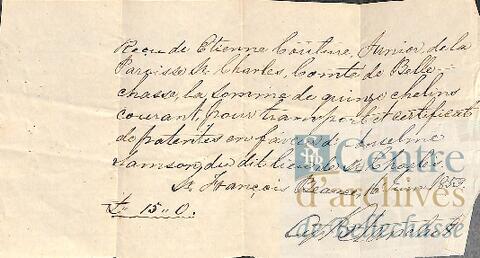 Reçu de Etienne Couture, Junior, de la
Paroisse St. Charles, Comté de Belle-
chasse, la somme de quinze chelins
courant, pour transport et certificat
de patentes en faveur de Anselme
Samson, du dit lieu de St. Charles.
St. François Beauce, 6 1853.
£ " 15 " 0.
Centre
d'archives
de Bellechasse